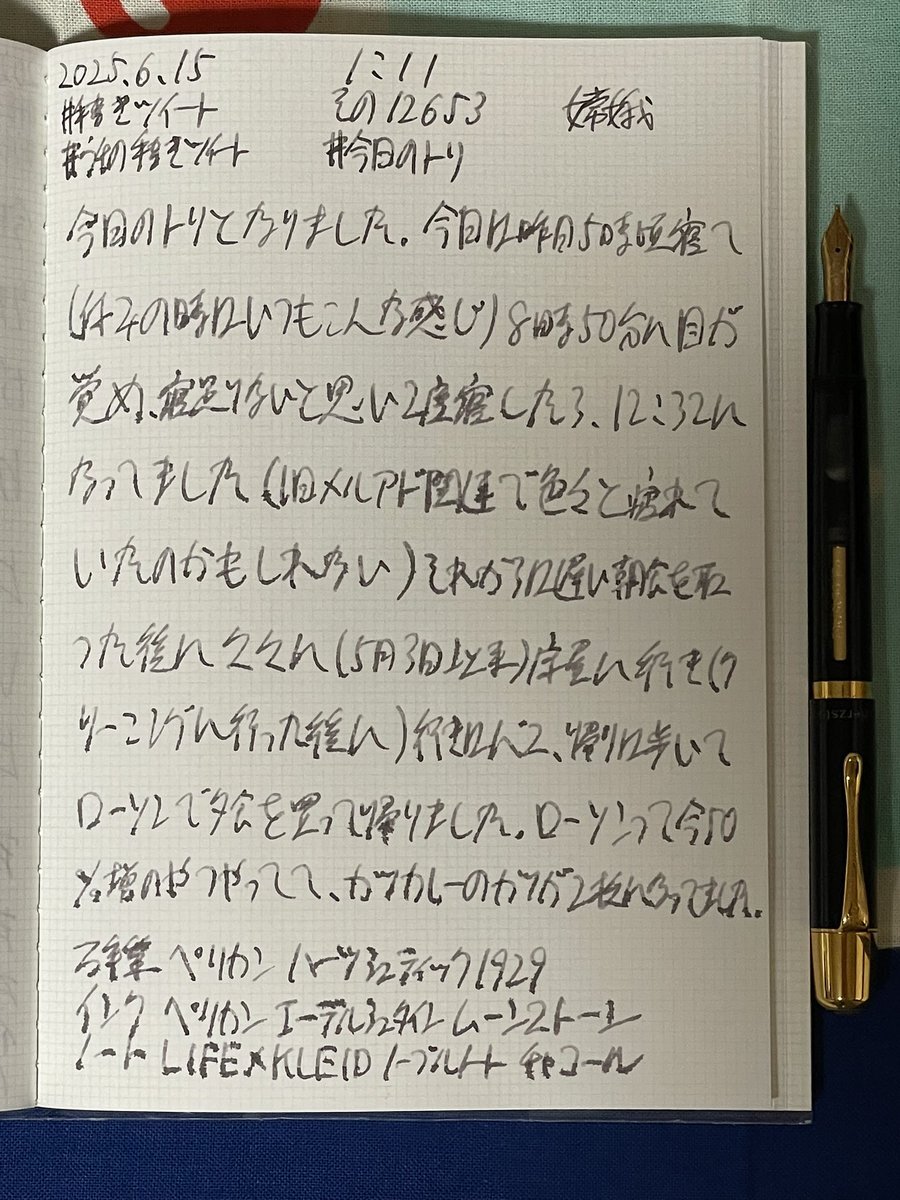 2025.6.15 1:11
#手書きツイート その12653 嫦娥
#うちの手書きツイート #今日のトリ
今日のトリとなりました。今日は昨日5時頃寝て
(休みの時はいつもこんな感じ)8時50分に目が
覚め、寝足りないと思い2度寝したら、12:32に
なってました(旧メルアド関連で色々と疲れて
いたのかもしれない)それからは遅い朝食を取
った後に久々に(5月3日以来)床屋に行き(ク
リーニングに行った後に)行きはバス、帰りは歩いて
ローソンで夕食を買って帰りました。ローソンって今50
%増のやつやってて、カツカレーのカツが2枚になってました。
ペリカン ハーツシュティック1929
インク ペリカン エーデルシュタイン ムーンストーン
ノート LIFE×KLEID ノーブルノート チャコール